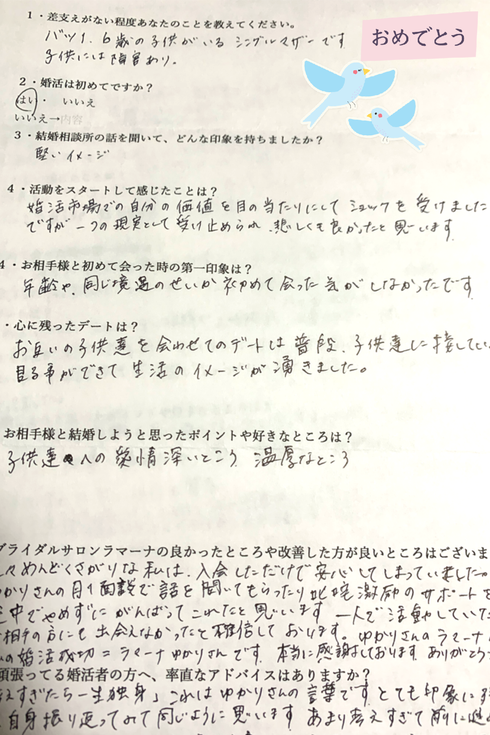 1・差支えがない程度あなたのことを教えてください。
おめでとう
バツ1、6歳の子供がいるシングルマザーです
子供には障害あり。
2・婚活は初めてですか?
はい・いいえ
いいえ→内容
3・結婚相談所の話を聞いて、どんな印象を持ちましたか?
堅いイメージ
4・活動をスタートして感じたことは?
婚活市場での自分の価値を目の当たりにしてショックを受けました
ですが一つの現実として受け止められ、悲しくも良かったと思います。
4・お相手様と初めて会った時の第一印象は?
年齢や、同じ境遇のせいか初めて会った気がしなかったです
・心に残ったデートは?
お互いの子供達を会わせてのデートは普段、子供達に接してい
見る事ができて生活のイメージが湧きました。
お相手様と結婚しようと思ったポイントや好きなところは?
子供達への愛情深いところ 温厚なところ
ブライダルサロンラマーナの良かったところや改善した方が良いところはございま
々めんどくさがりな私は、入会しただけで安心してしまっていました
かりさんの月1面談で話を聞いてもらったり叱咤激励のサポートを
中でやめずにがんばってこれたと思います 一人で活動していた
相手の方にも出会えなかったと確信しております。ゆかりさんのラマーナ
の婚活成功=ラマーナゆかりさんです。本当に感謝しております ありがとう
頑張ってる婚活者の方へ、率直なアドバイスはありますか?
えすぎたら一生独身」これはゆかりさんの言葉です とても印象に
自身振り返ってみて同じように思います あまり考えすぎて前に